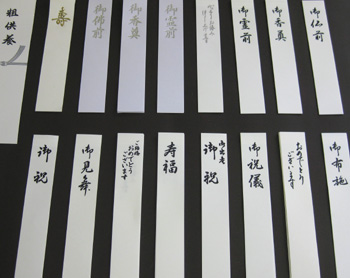 粗供養
寿
御佛前
御香奠
御霊前
御霊前
御香奠
御仏前
御祝
御見舞
ご結婚
おめでとう
ございます
寿福
御出産
御祝
御祝儀
おめでとう
ございます
御布施